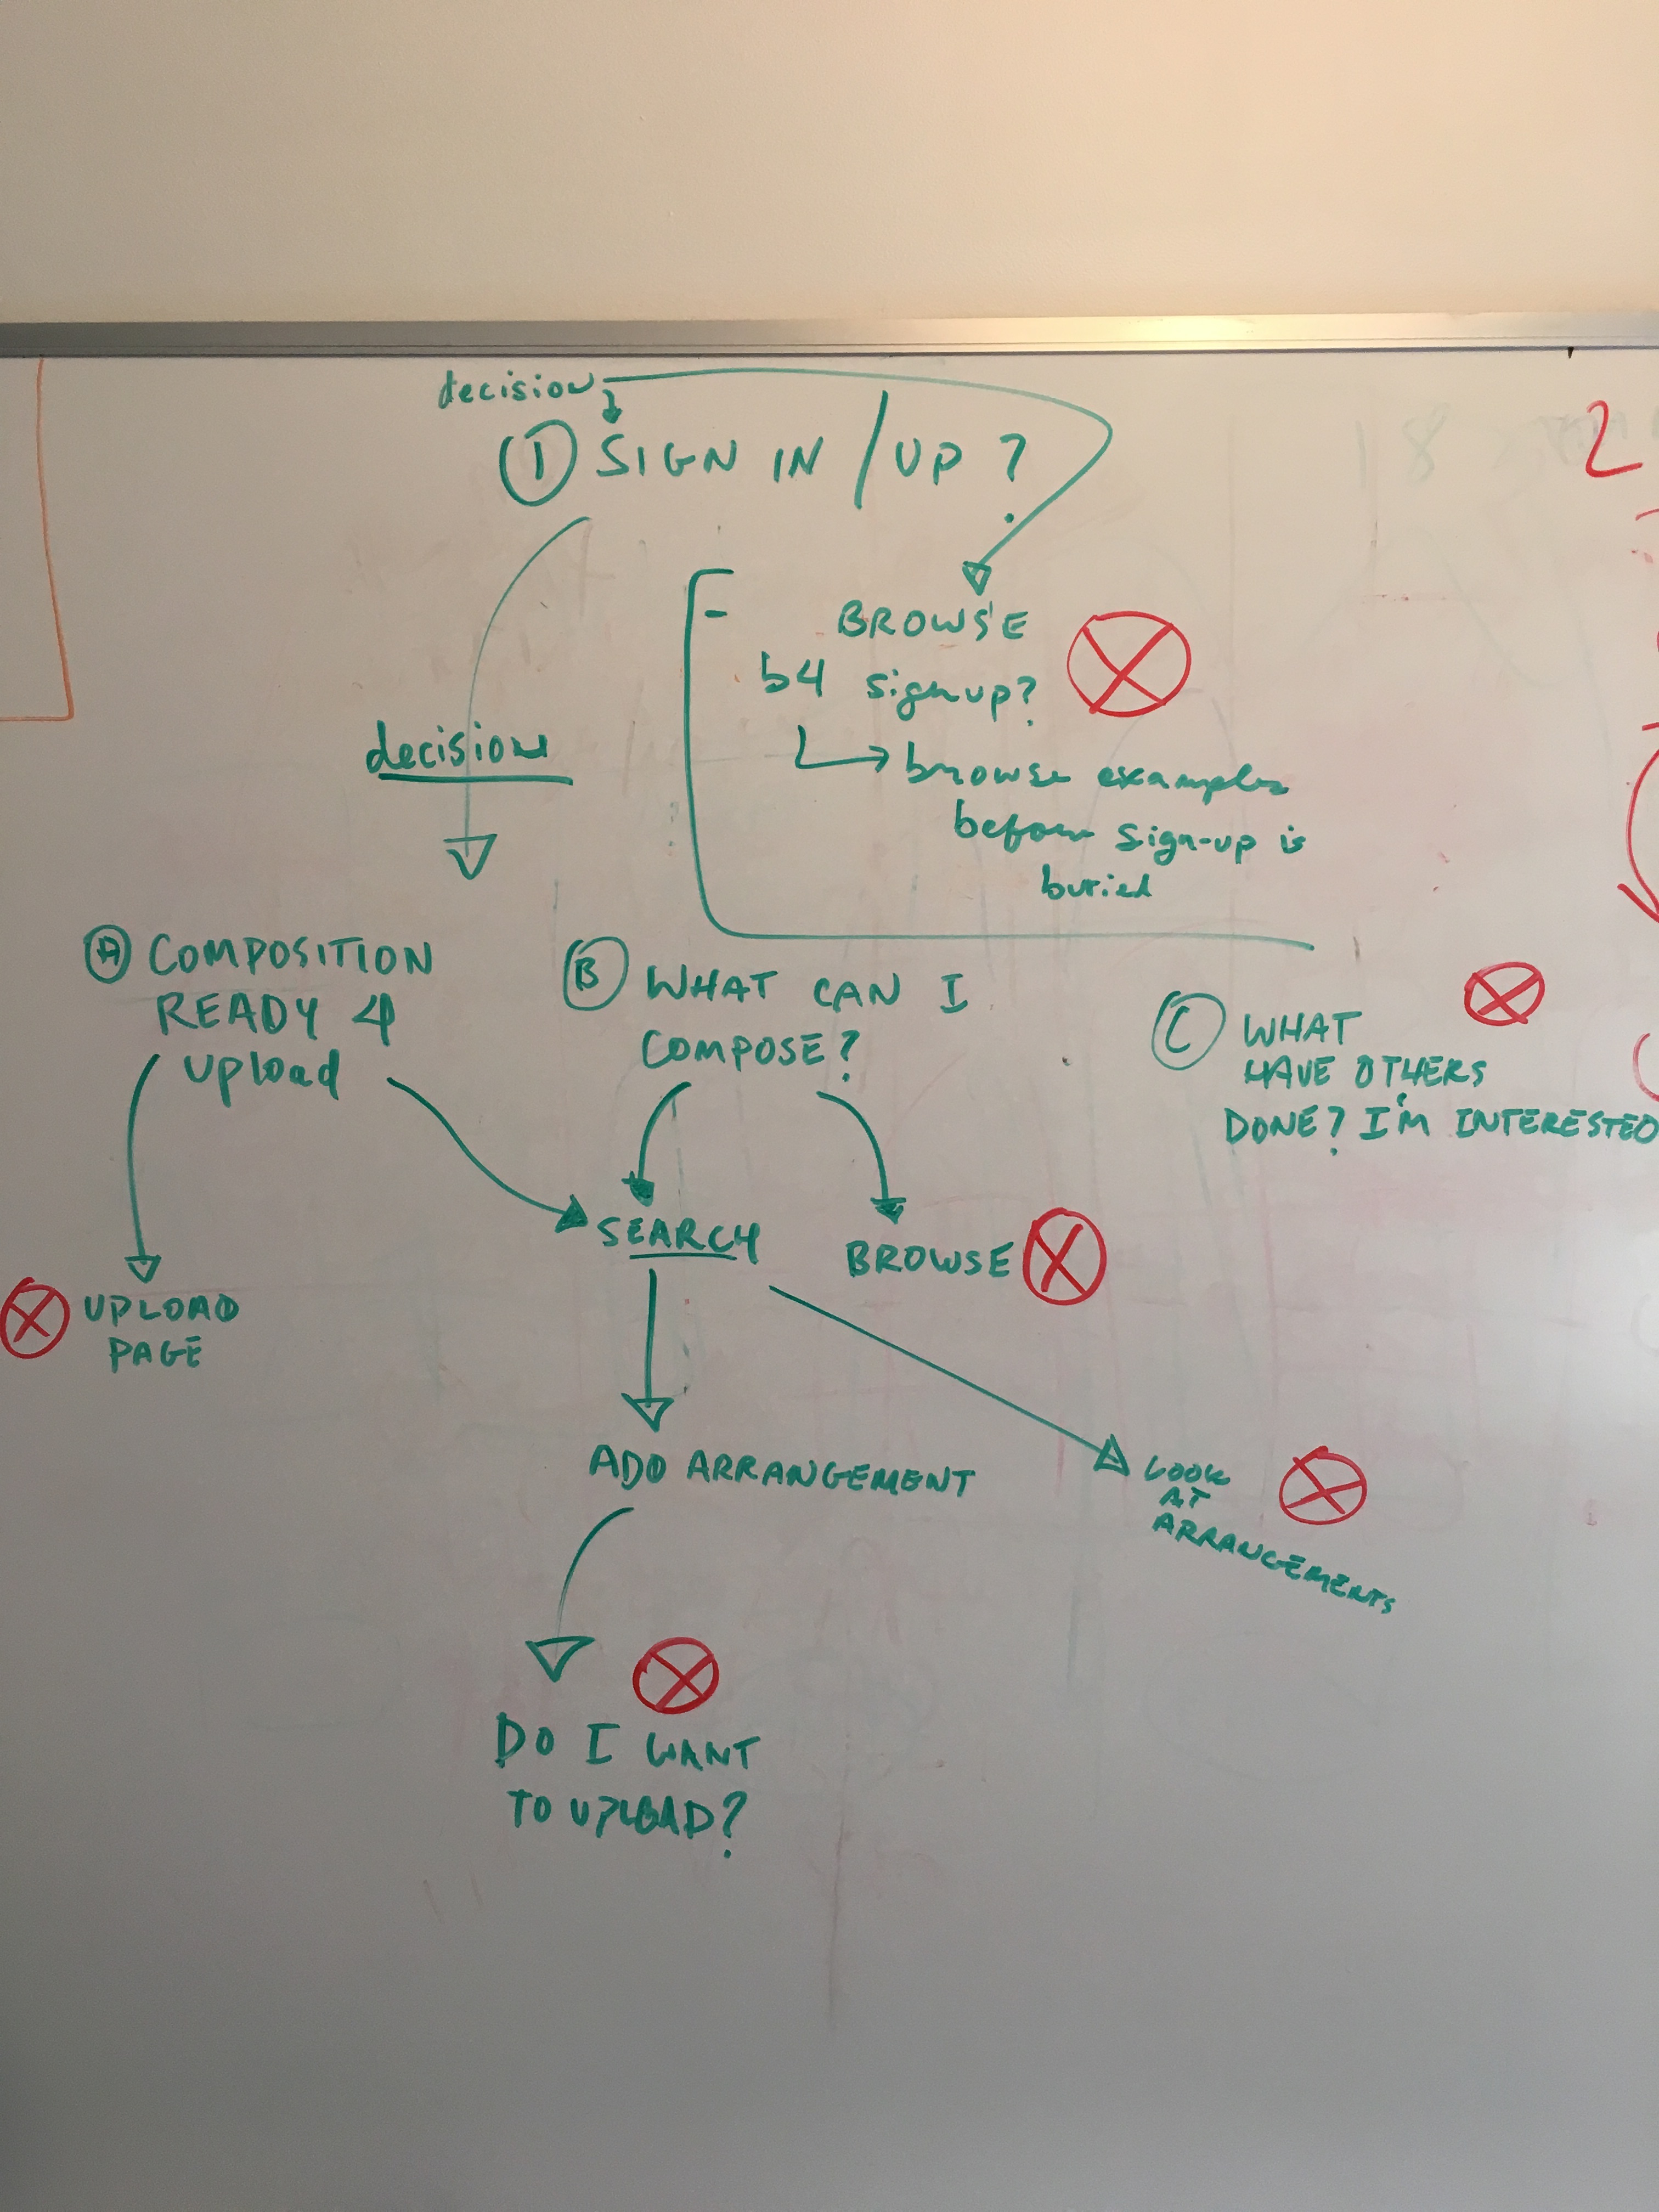 decision
① SIGN IN / UP ?
- BROWSE
b4 sign up?
browse examples
before sign-up is
buried
decision
Ⓐ COMPOSITION
READY 4
upload
Ⓑ WHAT CAN I
COMPOSE?
Ⓒ WHAT
HAVE OTHERS
DONE? I'M INTERESTED
SEARCH
BROWSE
UPLOAD
PAGE
ADD ARRANGEMENT
LOOK
AT
ARRANGEMENTS
DO I WANT
TO UPLOAD?
2